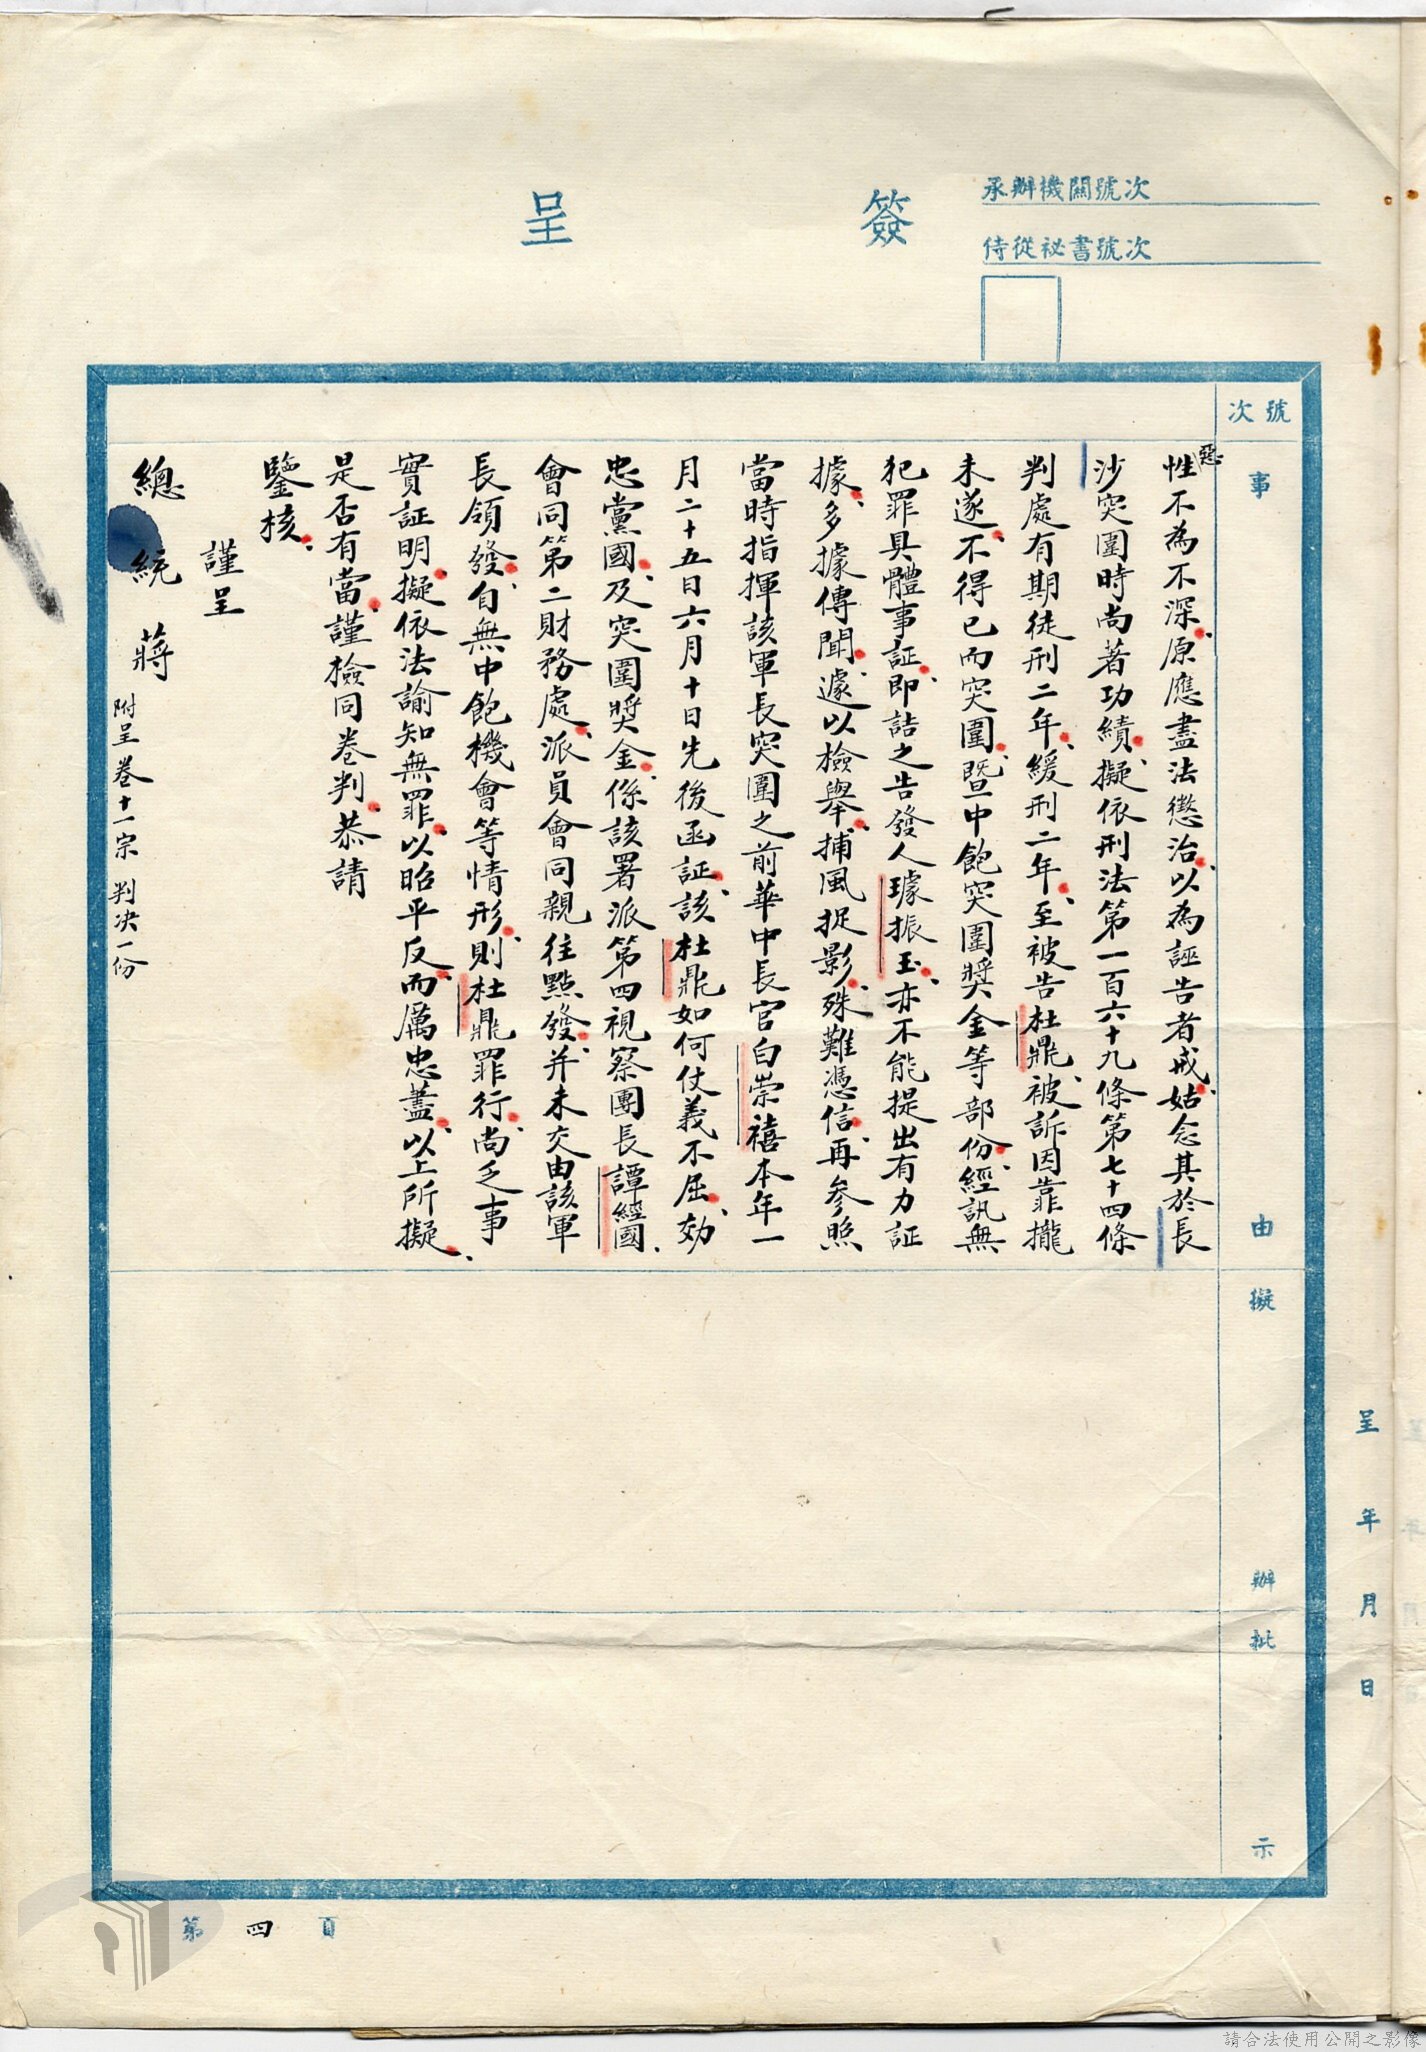 承辦機關號次
侍從祕書號次
簽呈
號次
事由
擬辦
批示
惡
性不為不深、原應盡法懲治、以為誣告者戒、姑念其於長
沙突圍時尚著功績、擬依刑法第一百六十九條第七十四條
判處有期徒刑二年、緩刑二年、至被告杜鼎被訴因靠攏
未遂、不得已而突圍、暨中飽突圍獎金等部份、經訊無
犯罪具體事証、即詰之告發人璩振玉、亦不能提出有力証
據、多據傳聞、遽以檢舉、捕風捉影、殊難憑信、再參照
當時指揮該軍長突圍之前華中長官白崇禧本年一
月二十五日六月十日先後函証、該杜鼎如何仗義不屈、効
忠黨國、及突圍獎金、係該署派第四視察團長譚經國、
會同第二財務處、派員會同親往點發、并未交由該軍
長領發、自無中飽機會等情形、則杜鼎罪行、尚乏事
實証明、擬依法諭知無罪、以昭平反、而厲忠藎、以上所擬、
是否有當、謹檢同卷判、恭請
鑒核、
謹呈
總統 蔣
附呈卷十一宗 判決一份
呈 年 月 日
第四頁
請合法使用公開之影像